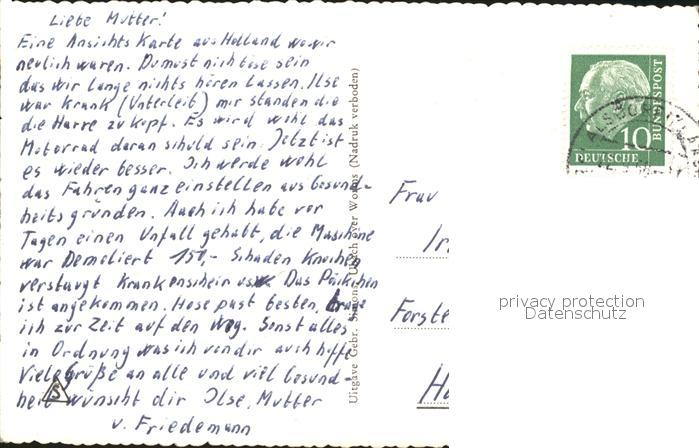 Liebe Mutter!
Eine Ansichts Karte aus Holland wo wir
neulich waren. Du must nicht böse sein
das wir lange nichts hören lassen. Ilse
war Krank (Unterleib) mir standen die
die Harre zu Kopf. Es wird wohl das
Motorrad daran schuld sein. Jetzt ist
es wieder besser. Ich werde wohl
das Fahren ganz einstellen aus Gesund-
heits gründen. Auch ich habe vor
Tagen einen Unfall gehabt, die Maschine
war Demoliert 150,- Schaden Knochen
verstaugt Krankenschein usw. Das Päckchen
ist angekommen. Hose past besten, trage
ich zur Zeit auf den Weg. Sonst alles
in Ordnung was ich von dir auch hoffe
Viele Grüße an alle und viel Gesund-
heit wünscht dir Ilse, Mutter
v. Friedemann
S
Uitgave Gebr. Simons, Ulach over Worms (Nadruk verboden)
10
DEUTSCHE
BUNDESPOST
Frau
Ir
Forste
Ha
privacy protection
Datenschutz